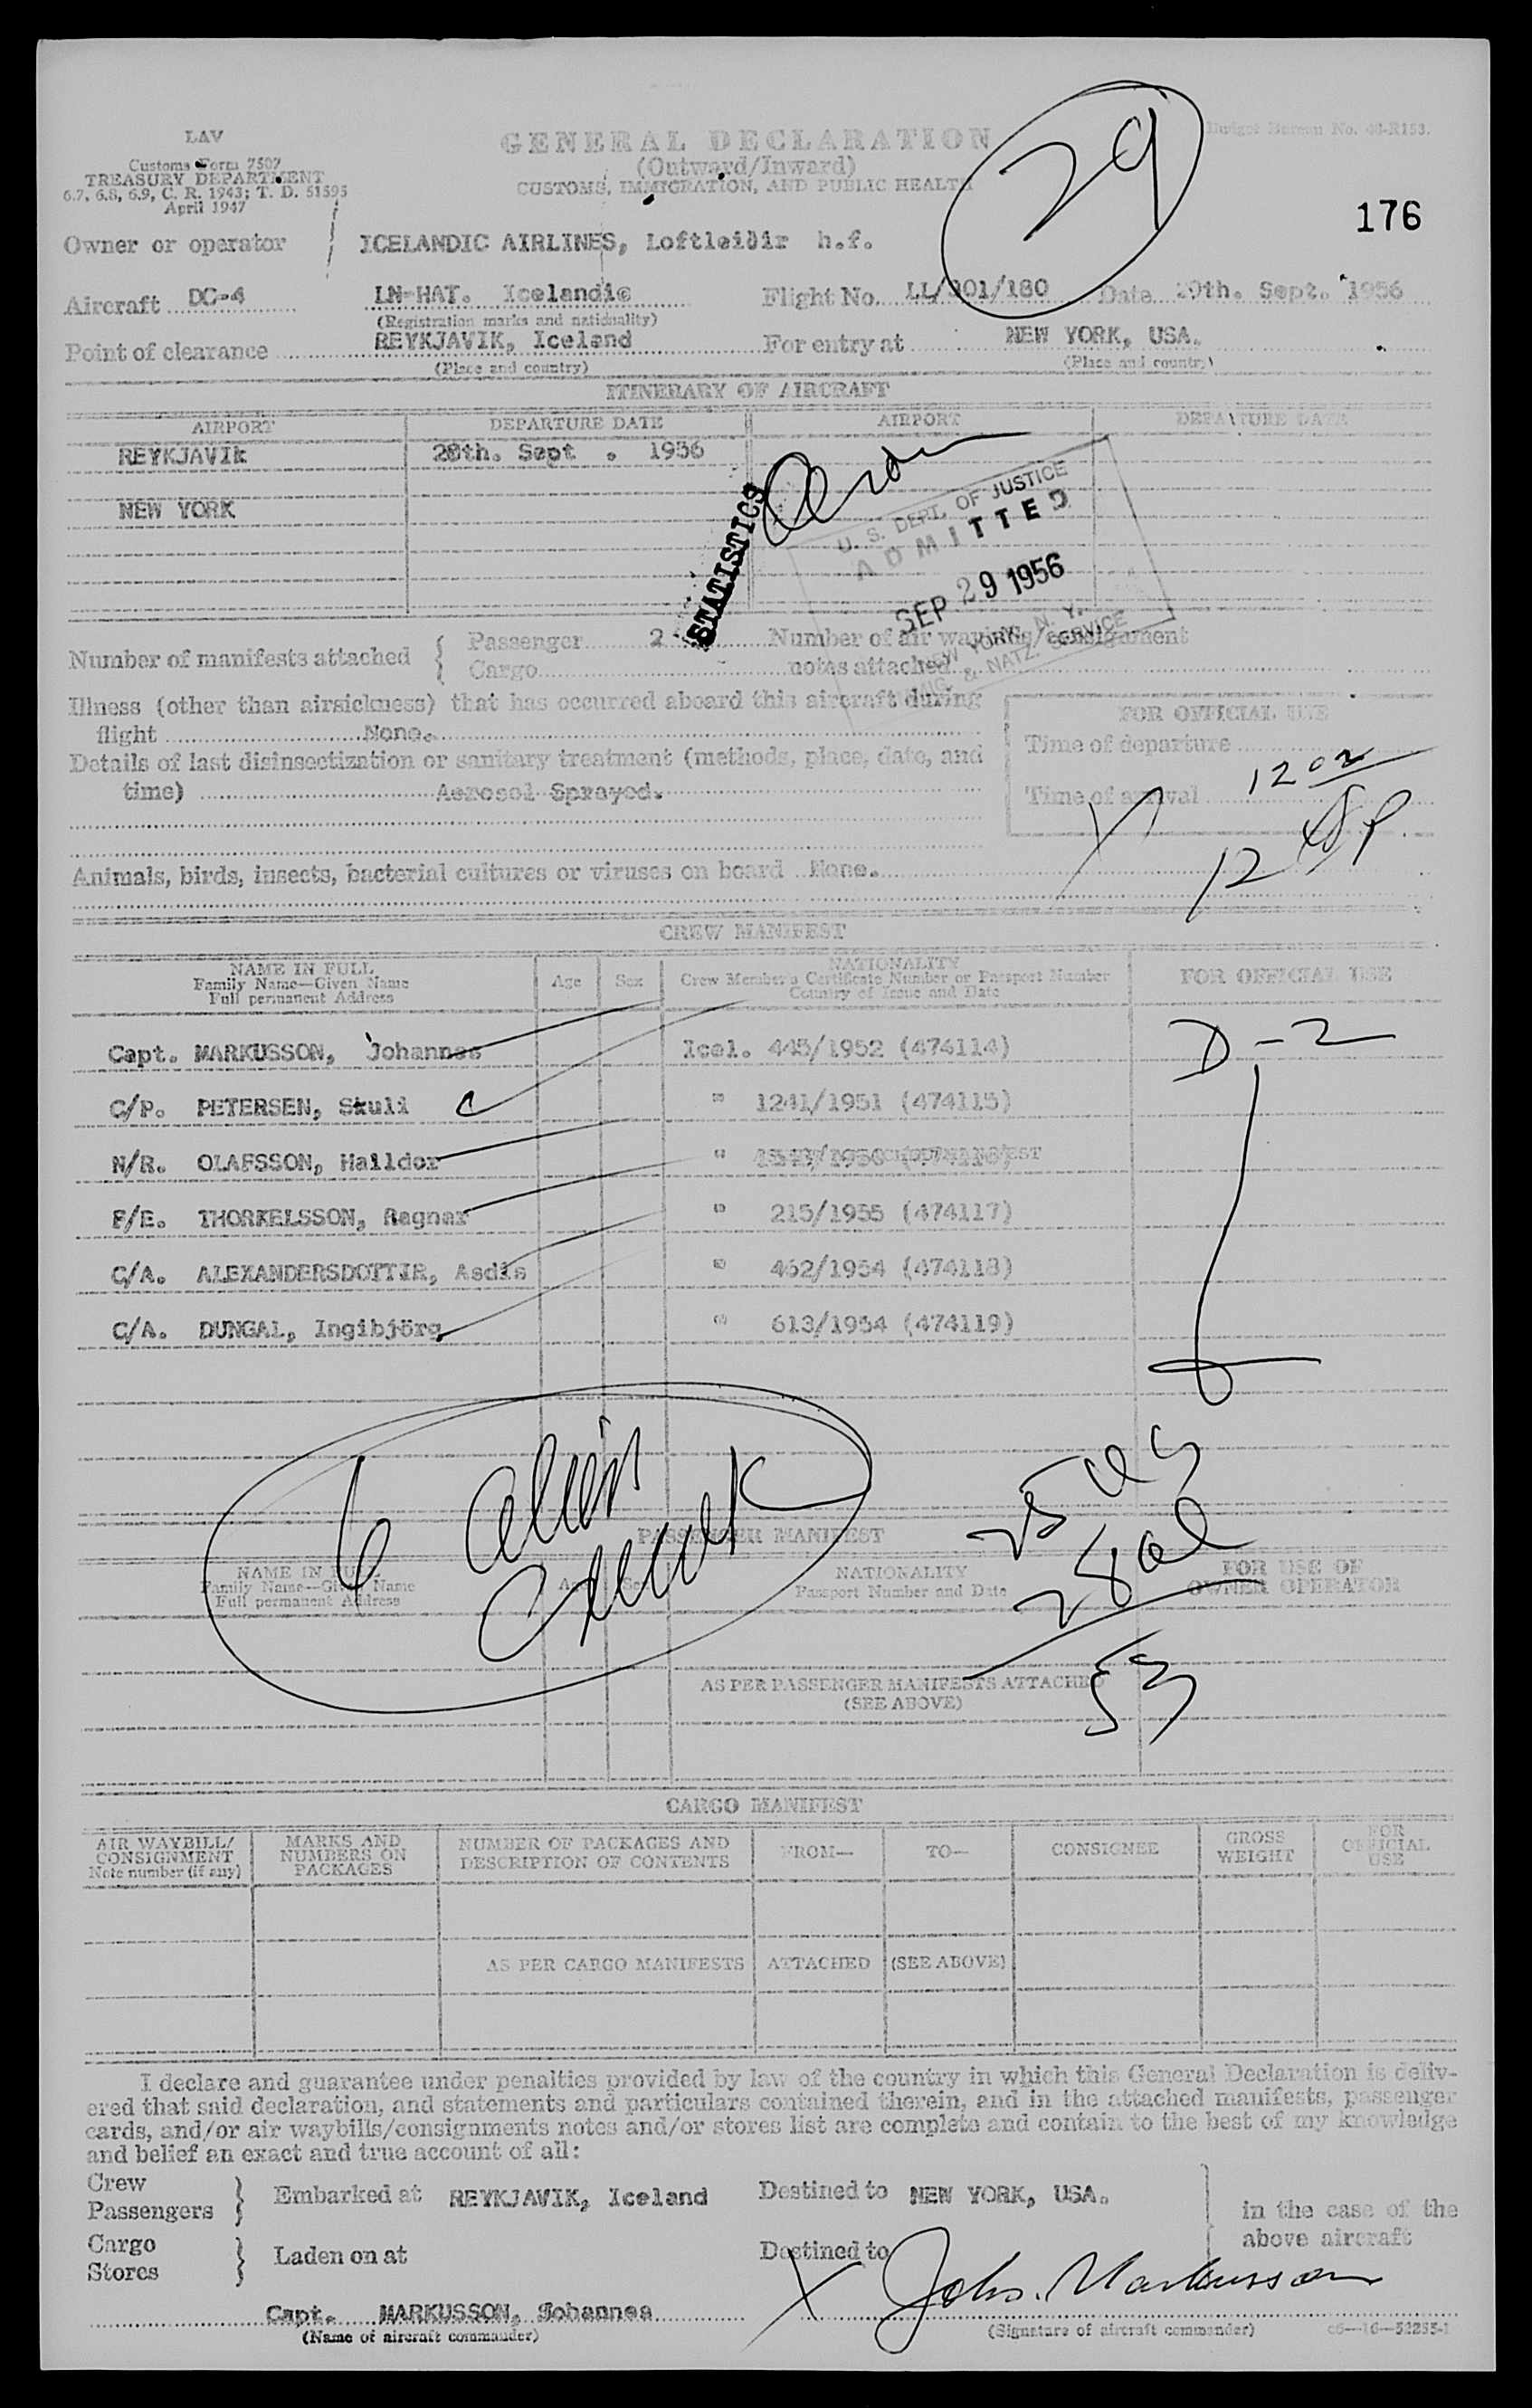 LAV
Customs Form 7507
TREASURY DEPARTMENT
6.7, 6.8, 6.9, C. R. 1943; T. D. 51595
April 1947
GENERAL DECLARATION
(Outward/Inward)
CUSTOMS, IMMIGRATION, AND PUBLIC HEALTH
Budget Bureau No. 48-R153.
29
176
Owner or operator ICELANDIC AIRLINES, Loftleiðir h.f.
Aircraft DC-4 LN-HAT. Icelandic Flight No. LL/301/180 Date 29th. Sept. 1956
(Registration marks and nationality)
Point of clearance REYKJAVIK, Iceland For entry at NEW YORK, USA.
(Place and country) (Place and country)
ITINERARY OF AIRCRAFT
AIRPORT DEPARTURE DATE AIRPORT DEPARTURE DATE
REYKJAVIK 28th. Sept . 1956
NEW YORK
STATISTICS
U. S. DEPT. OF JUSTICE
ADMITTED
SEP 29 1956
NEW YORK, N. Y.
IMMIG. & NATZ. SERVICE
Number of manifests attached { Passenger 2 Number of air waybills/consignment
Cargo notes attached
Illness (other than airsickness) that has occurred aboard this aircraft during
flight None.
Details of last disinsectization or sanitary treatment (methods, place, date, and
time) Aerosol Sprayed.
FOR OFFICIAL USE
Time of departure
Time of arrival 12 02
12
Animals, birds, insects, bacterial cultures or viruses on board None.
CREW MANIFEST
NAME IN FULL
Family Name—Given Name
Full permanent Address
Age Sex
NATIONALITY
Crew Member's Certificate Number or Passport Number
Country of Issue and Date
FOR OFFICIAL USE
Capt. MARKUSSON, Johannes Icel. 445/1952 (474114) D-2
C/P. PETERSEN, Skuli " 1241/1951 (474115)
N/R. OLAFSSON, Halldor "
F/E. THORKELSSON, Ragnar " 215/1955 (474117)
C/A. ALEXANDERSDOTTIR, Asdis " 462/1954 (474118)
C/A. DUNGAL, Ingibjörg " 613/1954 (474119)
6 alien
25 US
28 al
53
PASSENGER MANIFEST
NAME IN FULL
Family Name—Given Name
Full permanent Address
Age Sex
NATIONALITY
Passport Number and Date
FOR USE OF
OWNER OPERATOR
AS PER PASSENGER MANIFESTS ATTACHED
(SEE ABOVE)
CARGO MANIFEST
AIR WAYBILL/
CONSIGNMENT
Note number (if any)
MARKS AND
NUMBERS ON
PACKAGES
NUMBER OF PACKAGES AND
DESCRIPTION OF CONTENTS
FROM— TO— CONSIGNEE
GROSS
WEIGHT
FOR
OFFICIAL
USE
AS PER CARGO MANIFESTS ATTACHED (SEE ABOVE)
I declare and guarantee under penalties provided by law of the country in which this General Declaration is deliv-
ered that said declaration, and statements and particulars contained therein, and in the attached manifests, passenger
cards, and/or air waybills/consignments notes and/or stores list are complete and contain to the best of my knowledge
and belief an exact and true account of all:
Crew
Passengers } Embarked at REYKJAVIK, Iceland Destined to NEW YORK, USA.
in the case of the
above aircraft
Cargo
Stores } Laden on at Destined to
X Johs. Markusson
Capt. MARKUSSON, Johannes
(Name of aircraft commander) (Signature of aircraft commander)